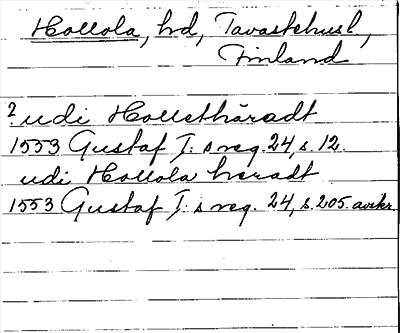 Hollola, hd, Tavastehusl,
Finland
? udi Hollethäradt
1553 Gustaf I:s reg. 24, s. 12.
udi Hollola heradt
1553 Gustaf I:s reg. 24, s. 205. avskr.